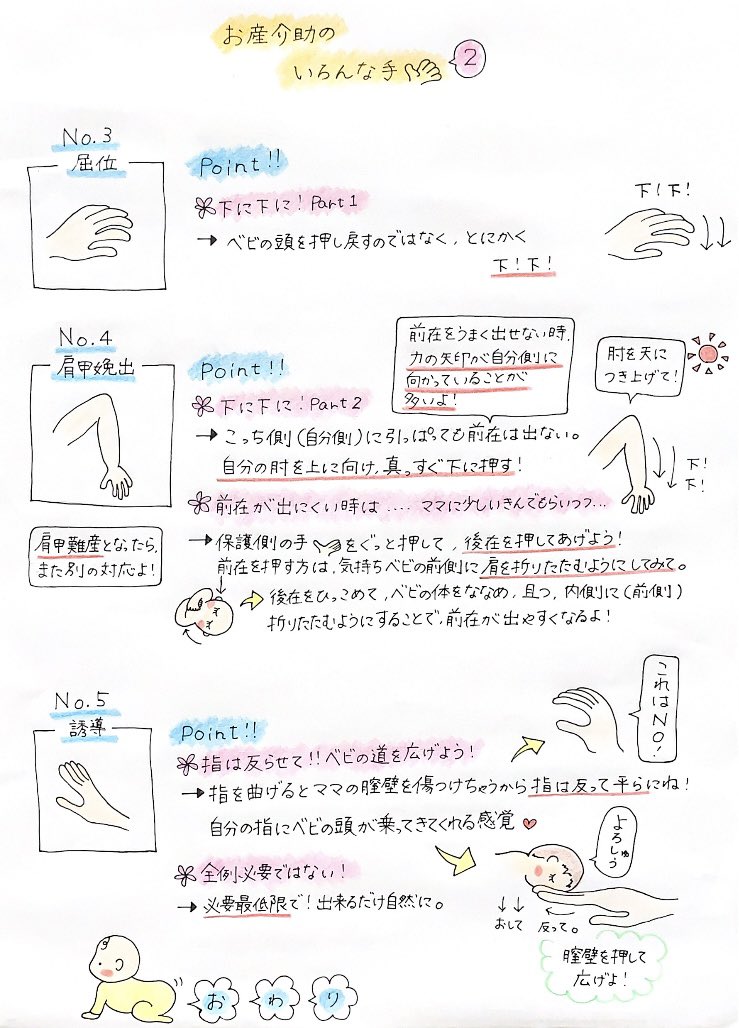 お産介助の
いろんな手
2
No.3
屈位
Point!!
下に下に! Part1
→ ベビの頭を押し戻すのではなく、とにかく
下!下!
下!下!
No.4
肩甲娩出
Point!!
下に下に! Part2
→ こっち側(自分側)に引っぱっても前在は出ない。
自分の肘を上に向け、真っすぐ下に押す!
前在をうまく出せない時、
力の矢印が自分側に
向かっていることが
多いよ!
肘を天に
つき上げて!
下!
下!
前在が出にくい時は.... ママに少しいきんでもらいつつ...
→ 保護側の手をぐっと押して、後在を押してあげよう!
前在を押す方は、気持ちベビの前側に肩を折りたたむようにしてみて。
肩甲難産となったら、
また別の対応よ!
後在をひっこめて、ベビの体をななめ、且つ、内側に(前側)
折りたたむようにすることで、前在が出やすくなるよ!
No.5
誘導
Point!!
指は反らせて!!ベビの道を広げよう!
→ 指を曲げるとママの膣壁を傷つけちゃうから指は反って平らにね!
自分の指にベビの頭が乗ってきてくれる感覚
これはNO!
全例必要ではない!
→ 必要最低限で!出来るだけ自然に。
よろしゅう
おして
反って。
膣壁を押して
広げよ!
おわり